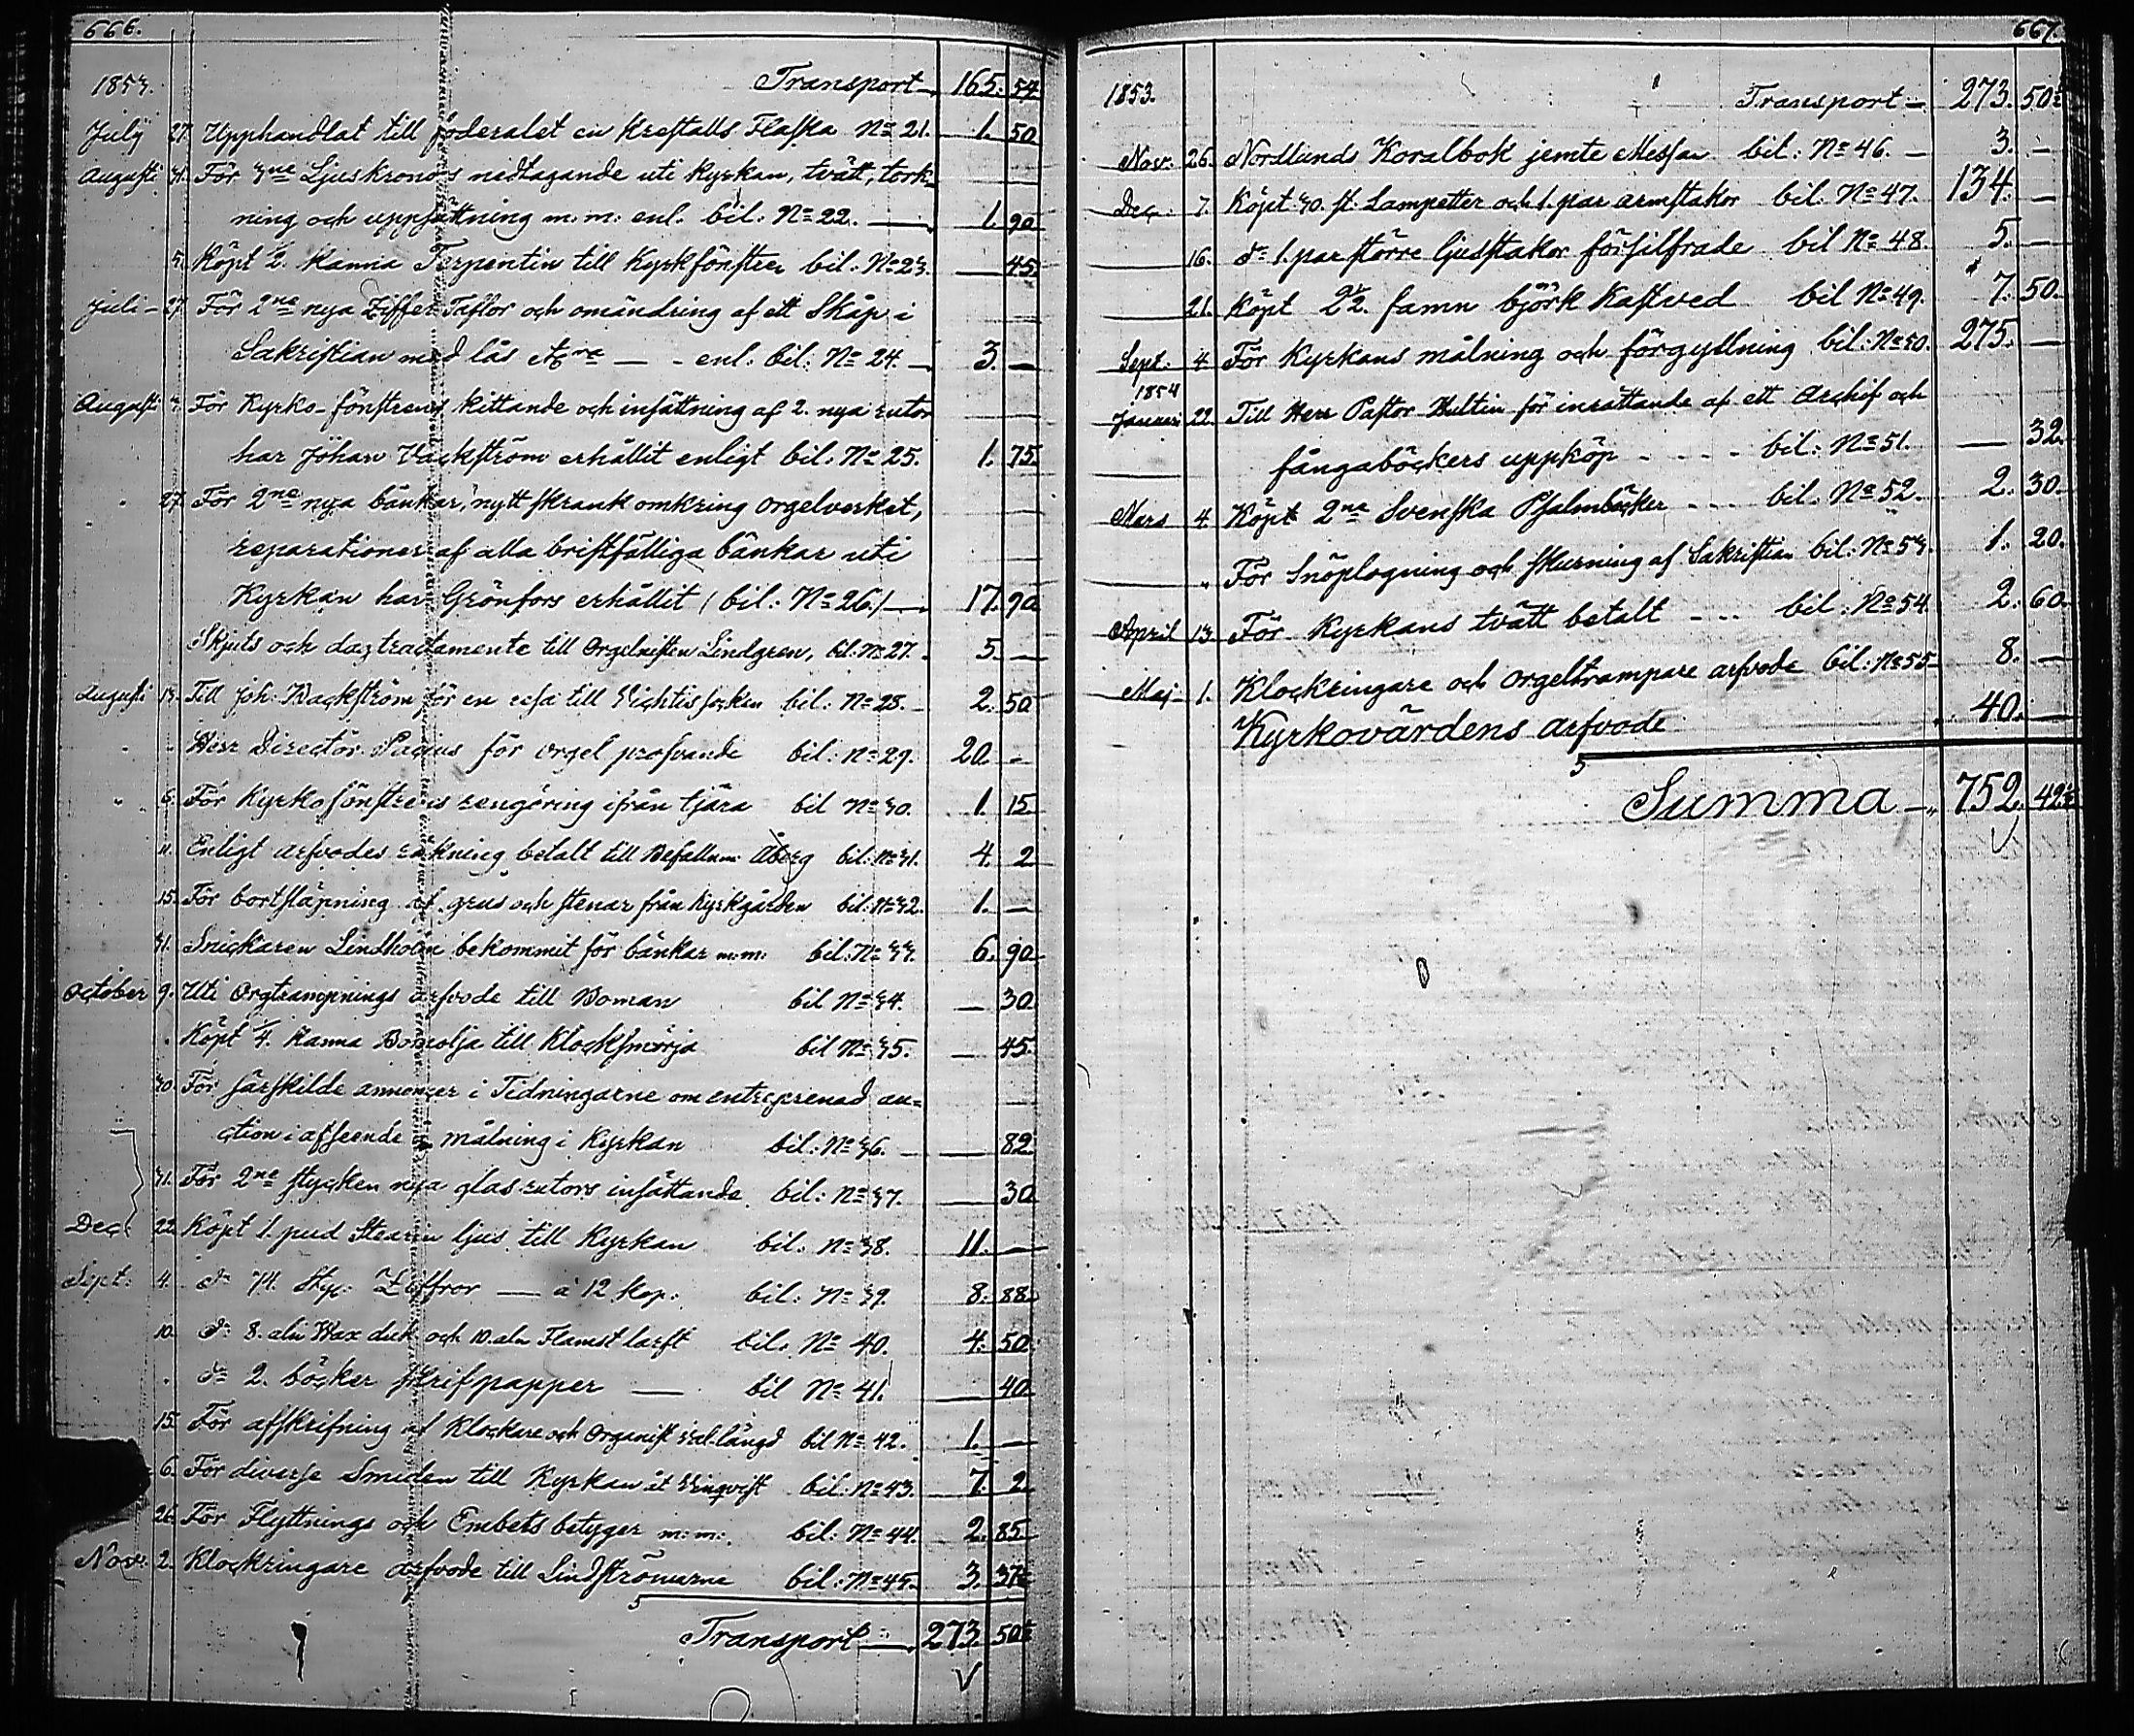 666.
1853. Transport 165. 54
July 27. Upphandlat till foderalet en Krestalls Flaska No 21. 1. 50
Augusti 31. För 3ne Ljuskronors nedtagande uti Kyrkan, tvätt, tork-
ning och uppsättning m: m: enl. bil: No 22. 1. 90
5. Köpt 1/2. Kanna Terpentin till Kyrkfönstren bil: No 23. — 45
Juli 27. För 2ne nya Ziffer Taflor och omändring af ett Skåp i
Sakristian med lås — enl: bil: No 24. 3. —
Augusti För Kyrko-fönstrens kittande och insättning af 2. nya rutor
har Johan Wackström erhållit enligt bil: No 25. 1. 75
27. För 2ne nya bänkar, nytt skrank omkring orgelverket,
reparationer af alla bristfälliga bänkar uti
Kyrkan har Grönfors erhållit (bil: No 26.) 17. 90
Skjuts och dagtractamente till Orgelnisten Lindgren, bil: No 27. 5. —
Augusti 13. Till Joh: Wackström för en resa till Vichtis socken bil: No 28. 2. 50
Herr Director Pacius för orgel profvande bil: No 29. 20. —
6. För Kyrkofönstrens rengöring ifrån tjära bil No 30. 1. 15
11. Enligt arfvodes räkning betalt till Befallnm: Åberg bil: No 31. 4. 2
15. För bortsläpning af grus och stenar från Kyrkgården bil: No 32. 1. —
31. Snickaren Lindholm bekommit för bänkar m: m: bil: No 33. 6. 90
October 9. Uti Orgtrampnings arfvode till Boman bil No 34. — 30
Köpt 1/4. Kanna Bomolja till Klocksmörja bil No 35. — 45.
30. För särskilde annoncer i Tidningarne om entreprenad au=
ction i afseende å målning i Kyrkan bil: No 36. — 82
31. För 2ne stycken nya glas rutors insättande bil: No 37. — 30
Dec: 22. Köpt 1. pud Stearin ljus till Kyrkan bil: No 38. 11. —
Sept: 4. do 74. Styc: Ziffror — à 12 kop: bil: No 39. 8. 88
10. do 8. aln Wax duk och 10. aln Flamst lärft bil. No 40. 4. 50
do 2. böcker skrifpapper — bil No 41. — 40
15. För afskrifning af Klockare och Organist val-längd bil No 42. 1. —
6. För diverse Smiden till Kyrkan åt bil: No 43. 7. 2
26. För Flyttnings och Embets betyger m: m: bil: No 44. 2. 85
Nov: 2. Klockringare arfvode till Lindströmarne bil: No 45. 3. 37½
Transport 273. 50½
667.
1853. Transport 273. 50½
Nov: 26. Nordlunds Koralbok jemte Messan bil: No 46. 3. —
Dec: 7. Köpt 30. st. Lampetter och 1. par armstakor bil: No 47. 134. —
16. do 1. par större ljusstakor försilfrade bil No 48. 5. —
21. Köpt 2½. famn björk Kastved bil No 49. 7. 50
Sept: 4 För Kyrkans målning och förgyllning bil: No 50. 275. —
1854
Januari 22. Till Herr Pastor Hultin för inrättande af ett Archif och
fångaböckers uppköp bil: No 51. — 32.
Mars 4. Köpt 2ne Svenska Psalmböcker bil: No 52. 2. 30.
" För Snöplogning och skurning af Sakristian bil: No 53. 1. 20.
April 13. För Kyrkans tvätt betalt bil: No 54. 2. 60
Maj 1. Klockringare och orgeltrampare arfvode bil: No 55 8. —
Kyrkovärdens arfvode 40. —
Summa 752. 42½